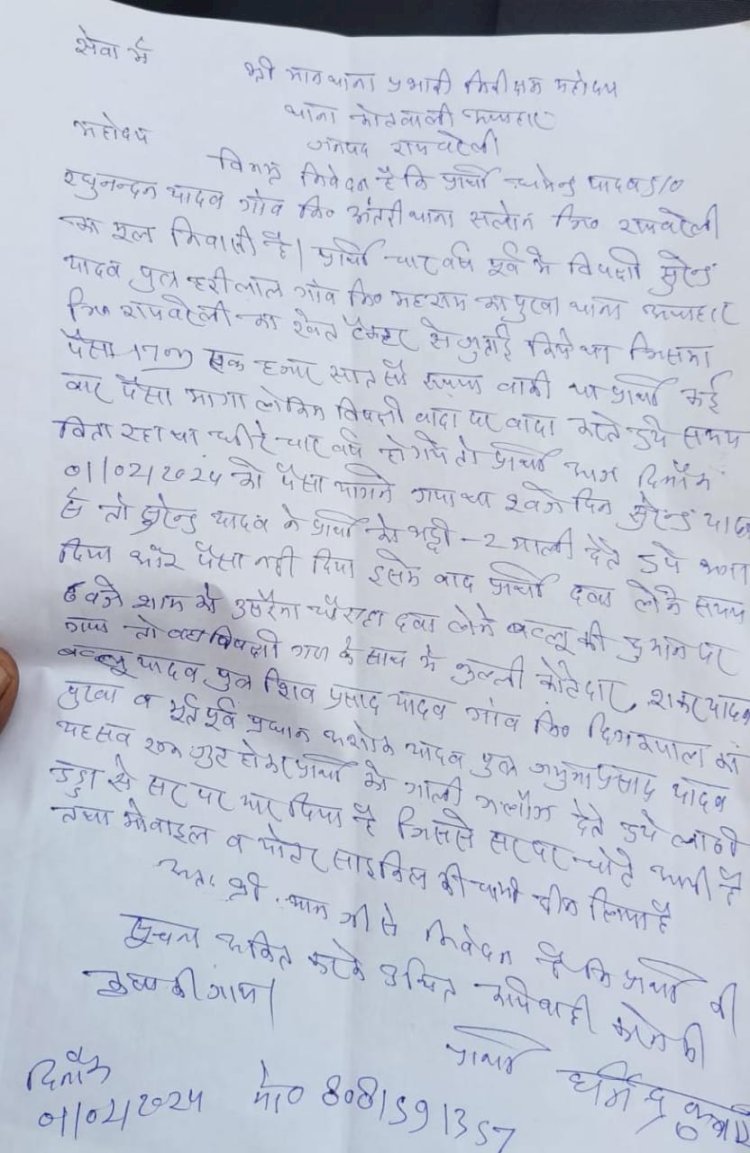 सेवा में
श्री मान थाना प्रभारी निरीक्षक महोदय
थाना कोतवाली ऊंचाहार
जनपद रायबरेली
महोदय
विनम्र निवेदन है कि प्रार्थी धर्मेन्द्र यादव S/O
रघुनन्दन यादव गाँव नि० अंतरी थाना सलोन जि० रायबरेली
का मूल निवासी है। प्रार्थी चार वर्ष पूर्व में विपक्षी सुरेन्द्र
यादव पुत्र हरीलाल गाँव नि० का पुरवा थाना ऊंचाहार
जि० रायबरेली का खेत टैक्टर से जुताई किये था जिसका
पैसा 1700 एक हजार सात सौ रूपया बाकी था प्रार्थी कई
बार पैसा मागा लेकिन विपक्षी वादा पर वादा करते हुये समय
बिता रहा था धीरे चार वर्ष हो गये तो प्रार्थी आज दिनाँक
01/02/2024 को पैसा मागने गया था दिन सुरेन्द्र यादव
से तो सुरेन्द्र यादव ने प्रार्थी को भद्दी-2 गाली देते हुये भगा
दिया और पैसा नही दिया इसके बाद प्रार्थी दवा लेने समय
6 बजे शाम को चौराहा दवा लेने बल्लू की दुकान पर
गया तो वहा विपक्षी गण के साथ में कोटेदार, यादव
बल्लू यादव पुत्र शिव प्रसाद यादव गाँव नि० का
पुरवा व भूतपूर्व प्रधान अशोक यादव पुत्र जमुना प्रसाद यादव
यह सब एक जुट होकर प्रार्थी को गाली गलौज देते हुये लाठी
डंडा से सर पर मार दिया है जिससे सर पर चोटे आयी है
तथा मोबाइल व मोटर साइकिल की चाभी छीन लिया है
अतः श्री मान जी से निवेदन है कि प्रार्थी की
सूचना अंकित करके उचित कार्यवाही करने की
कृपा की जाय।
प्रार्थी धर्मेन्द्र कुमार
दिनाँक
01/02/2024 मो० 8081591357